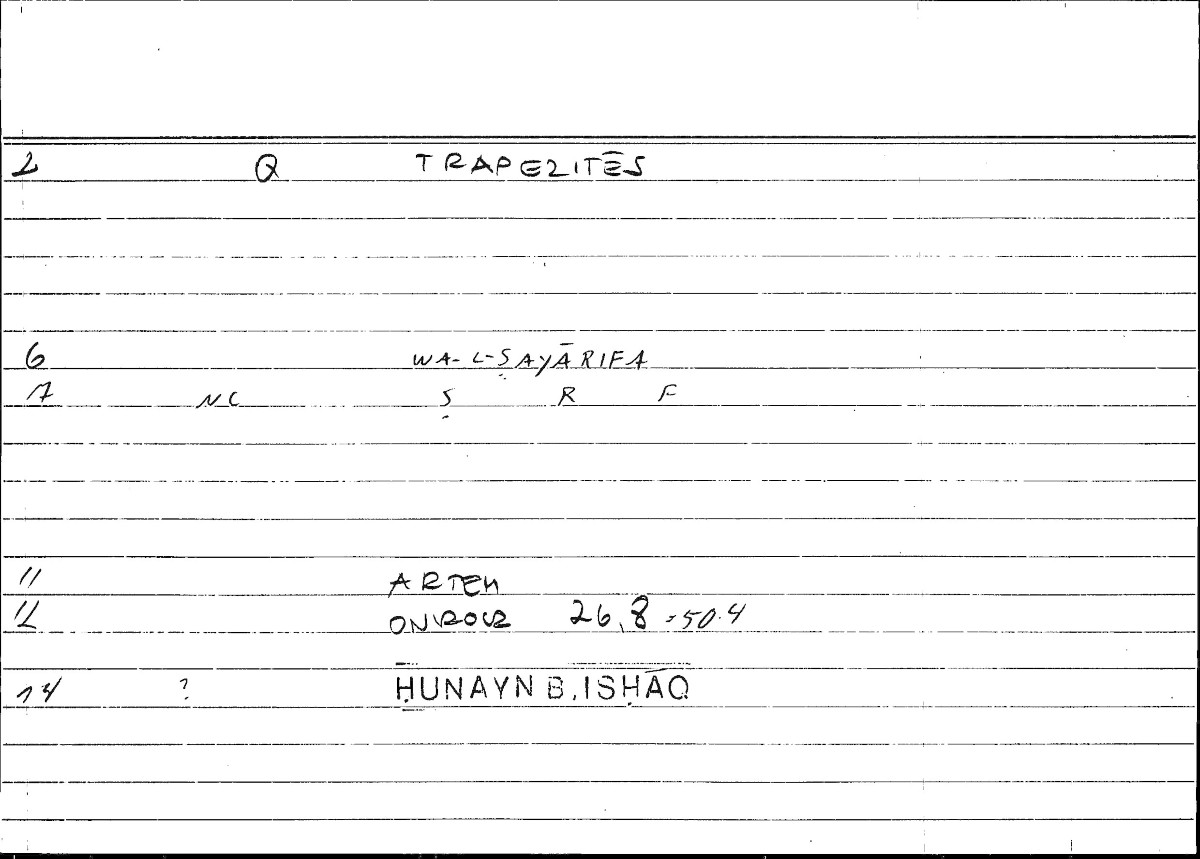 2 Q TRAPEZITĒS
6 WA-L-ṢAYĀRIFA
7 NC Ṣ R F
11 ARTEM
12 ONIROCR 26,8 = 50.4
14 ? ḤUNAYN B. ISḤĀQ